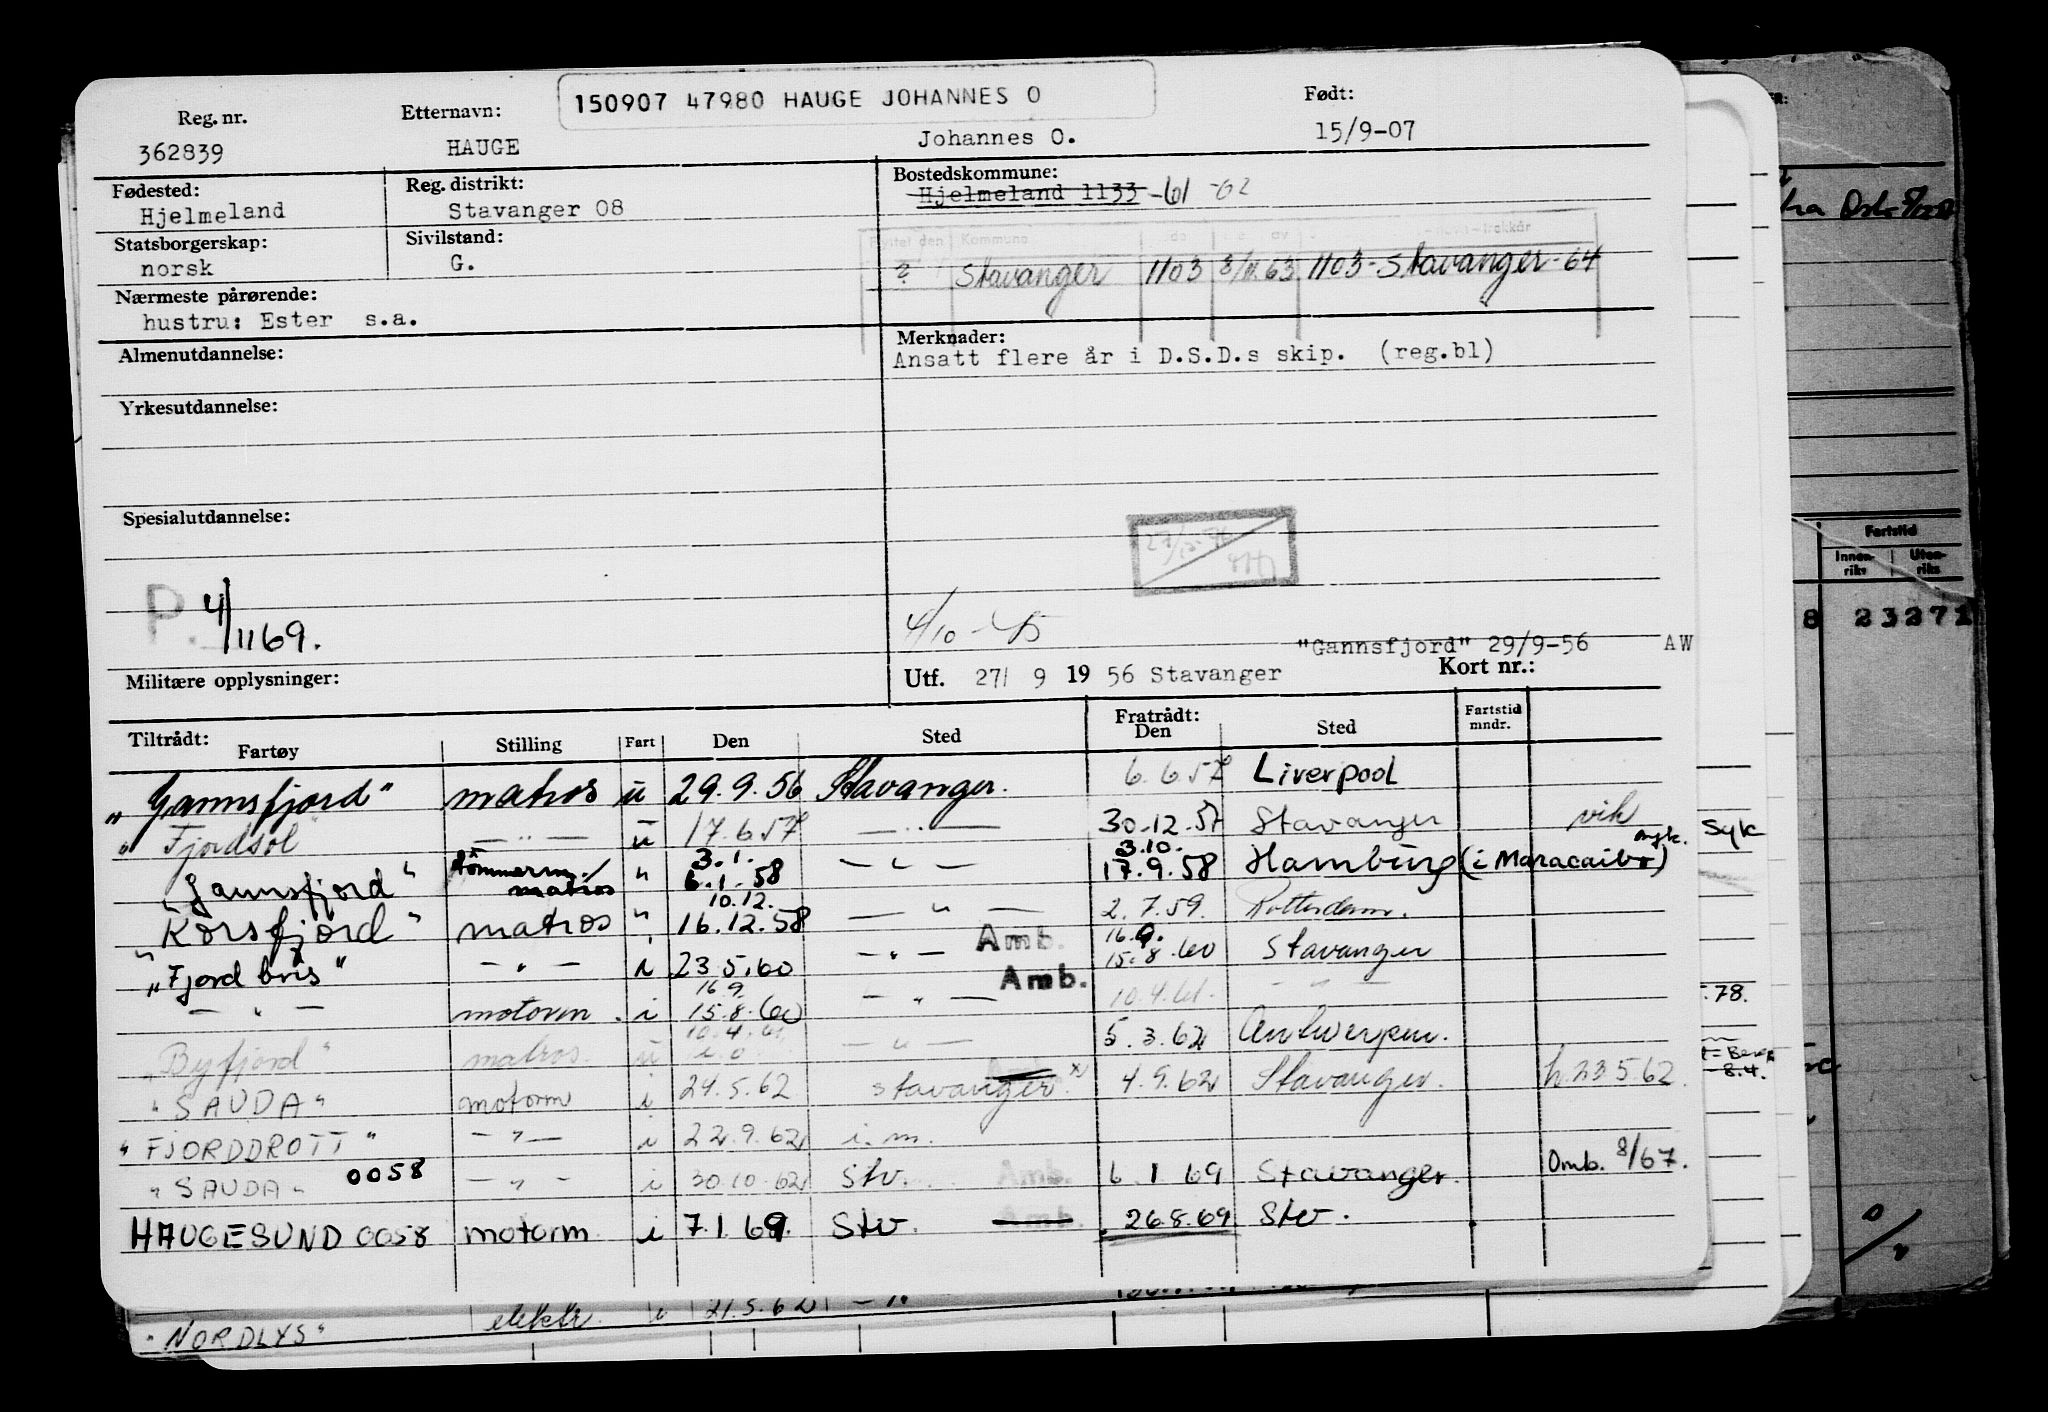 150907 47980 HAUGE JOHANNES O
Reg. nr. Etternavn: Født:
362839 HAUGE Johannes O. 15/9-07
Fødested: Reg. distrikt: Bostedskommune:
Hjelmeland Stavanger 08 Hjelmeland 1133 -61 -62
Statsborgerskap: Sivilstand: Flyttet den Kommune
norsk G. ? Stavanger 1103 3/11.63 1103-Stavanger-64
Nærmeste pårørende:
hustru: Ester s.a.
Almenutdannelse: Merknader:
Ansatt flere år i D.S.D.s skip. (reg.bl)
Yrkesutdannelse:
Spesialutdannelse:
P. 4/1169.
4/10-45
"Gannsfjord" 29/9-56 AW
Militære opplysninger: Utf. 27/ 9 19 56 Stavanger Kort nr.:
Tiltrådt: Fratrådt:
Fartøy Stilling Fart Den Sted Den Sted Fartstid mndr.
"Gannsfjord" matros u 29.9.56 Stavanger. 6.6.57 Liverpool
"Fjordsol" — " — u 17.6.57 — " — 30.12.57 Stavanger vik
"Gannsfjord" tømmerm./ matros " 3.1. 6.1.58 — " — 3.10. 17.9.58 Hamburg (i Maracaibo)
"Korsfjord" matros " 10.12. 16.12.58 — " — 2.7.59. Rotterdam.
"Fjord bris" — " — i 23.5.60 — " — Amb. 16.9. 15.8.60 Stavanger
— " — motorm. i 16.9. 15.8.60 — " — Amb. 10.4.61. — " —
"Byfjord" matros. u 10.4.61 i.o — " — 5.3.62 Antwerpen.
"SAUDA" motorm i 24.5.62 Stavanger x) 4.9.62 Stavanger. h.23.5.62
"FJORDDROTT" — " — i 22.9.62 i.m.
"SAUDA" 0058 — " — i 30.10.62 Stv. Amb. 6.1.69 Stavanger. Omb. 8/67.
HAUGESUND 0058 motorm i 7.1.69. Stv. Amb. 26.8.69 Stv.
elektr. 21.5.62 — " —
"NORDLYS"
Syk
.78.
8.4.
Fartstid
Innen-riks Uten-riks
8 23271